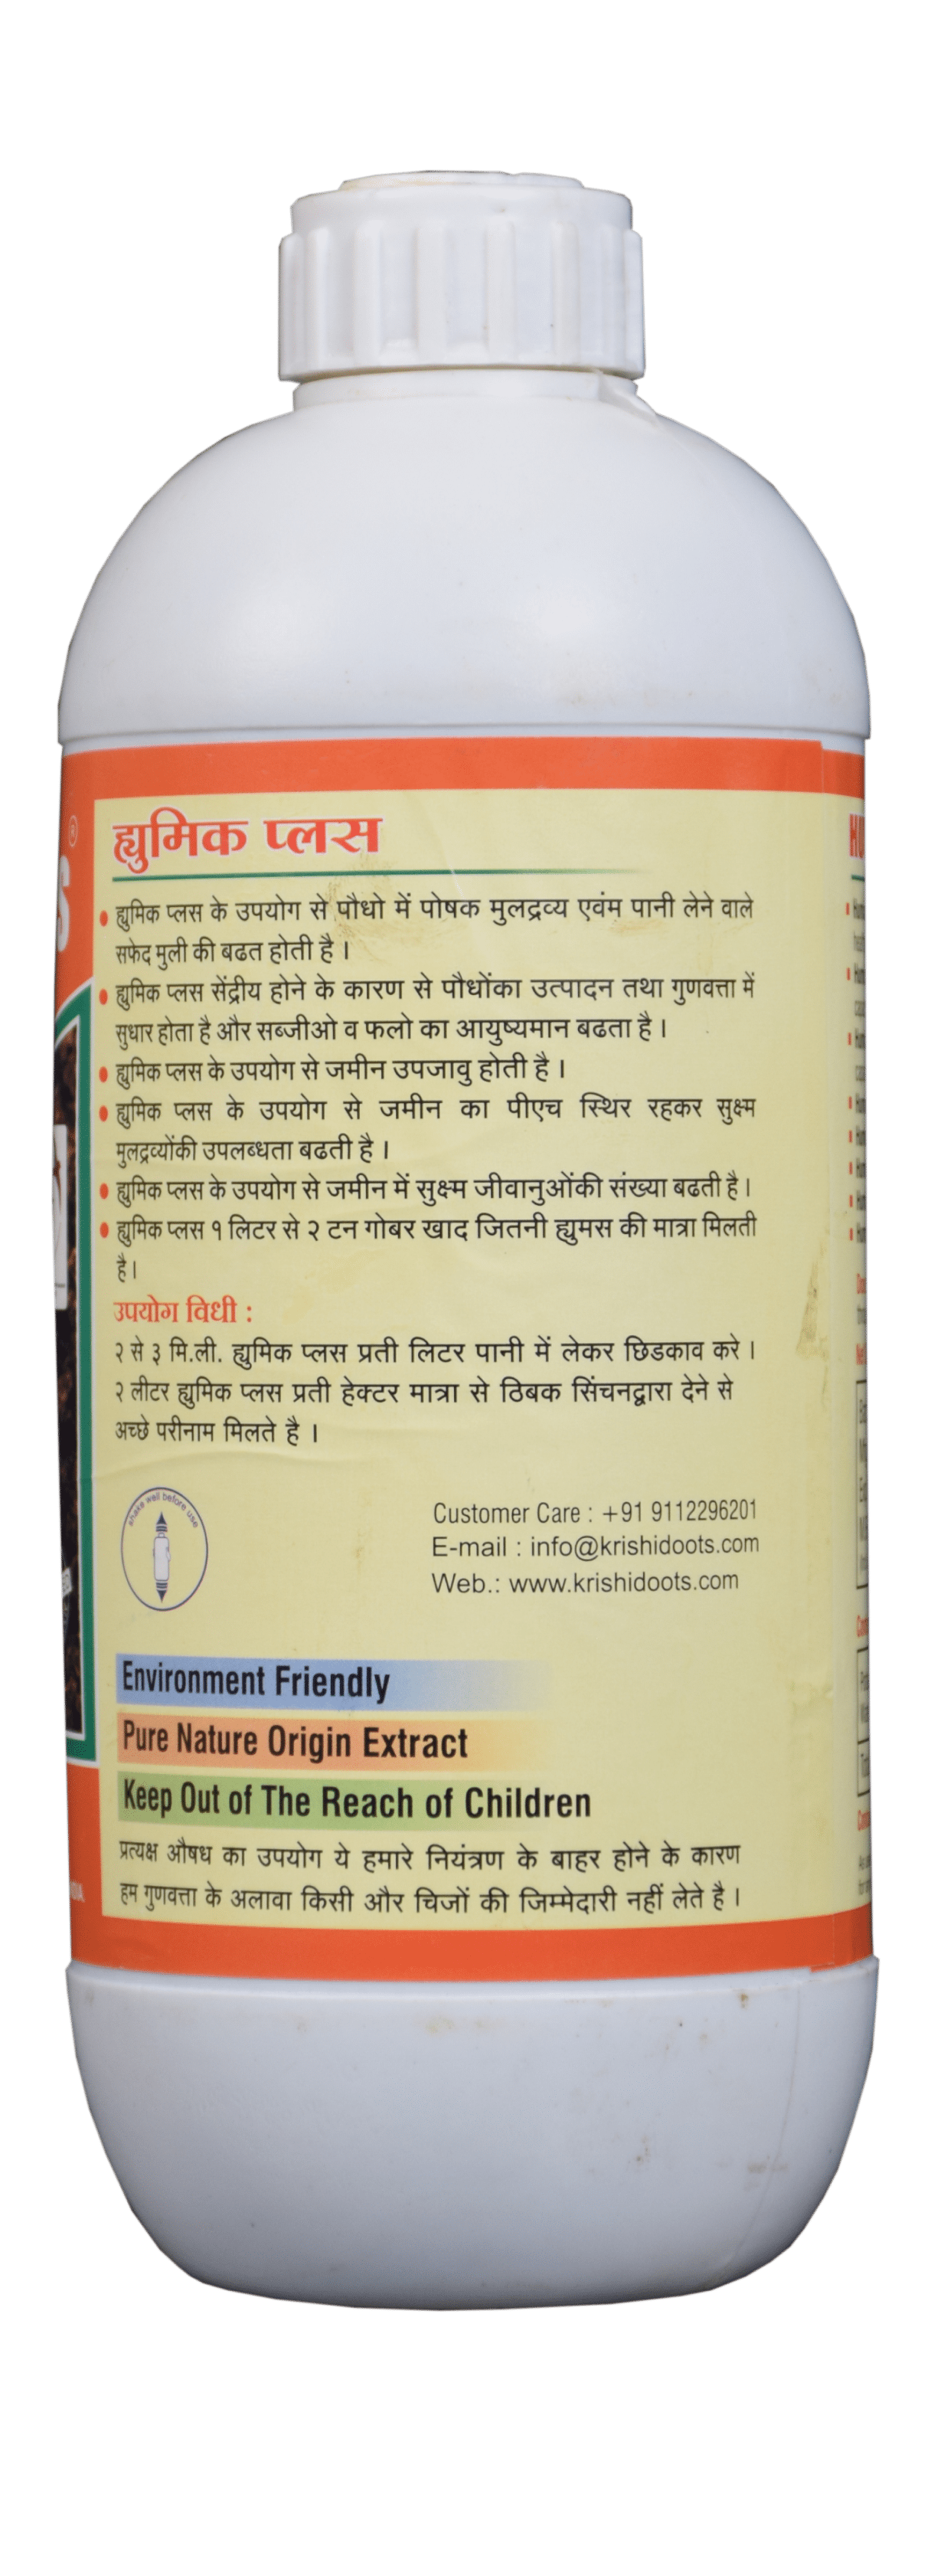 ®
S
ह्युमिक प्लस
ह्युमिक प्लस के उपयोग से पौधो में पोषक मुलद्रव्य एवंम पानी लेने वाले
सफेद मुली की बढत होती है ।
ह्युमिक प्लस सेंद्रीय होने के कारण से पौधोंका उत्पादन तथा गुणवत्ता में
सुधार होता है और सब्जीओ व फलो का आयुष्यमान बढता है ।
ह्युमिक प्लस के उपयोग से जमीन उपजावु होती है ।
ह्युमिक प्लस के उपयोग से जमीन का पीएच स्थिर रहकर सुक्ष्म
मुलद्रव्योंकी उपलब्धता बढती है ।
ह्युमिक प्लस के उपयोग से जमीन में सुक्ष्म जीवानुओंकी संख्या बढती है ।
ह्युमिक प्लस १ लिटर से २ टन गोबर खाद जितनी ह्युमस की मात्रा मिलती
है ।
उपयोग विधी :
२ से ३ मि.ली. ह्युमिक प्लस प्रती लिटर पानी में लेकर छिडकाव करे ।
२ लीटर ह्युमिक प्लस प्रती हेक्टर मात्रा से ठिबक सिंचनद्वारा देने से
अच्छे परीनाम मिलते है ।
shake well before use
Customer Care : +91 9112296201
E-mail : info@krishidoots.com
Web.: www.krishidoots.com
Environment Friendly
Pure Nature Origin Extract
Keep Out of The Reach of Children
प्रत्यक्ष औषध का उपयोग ये हमारे नियंत्रण के बाहर होने के कारण
हम गुणवत्ता के अलावा किसी और चिजों की जिम्मेदारी नहीं लेते है ।